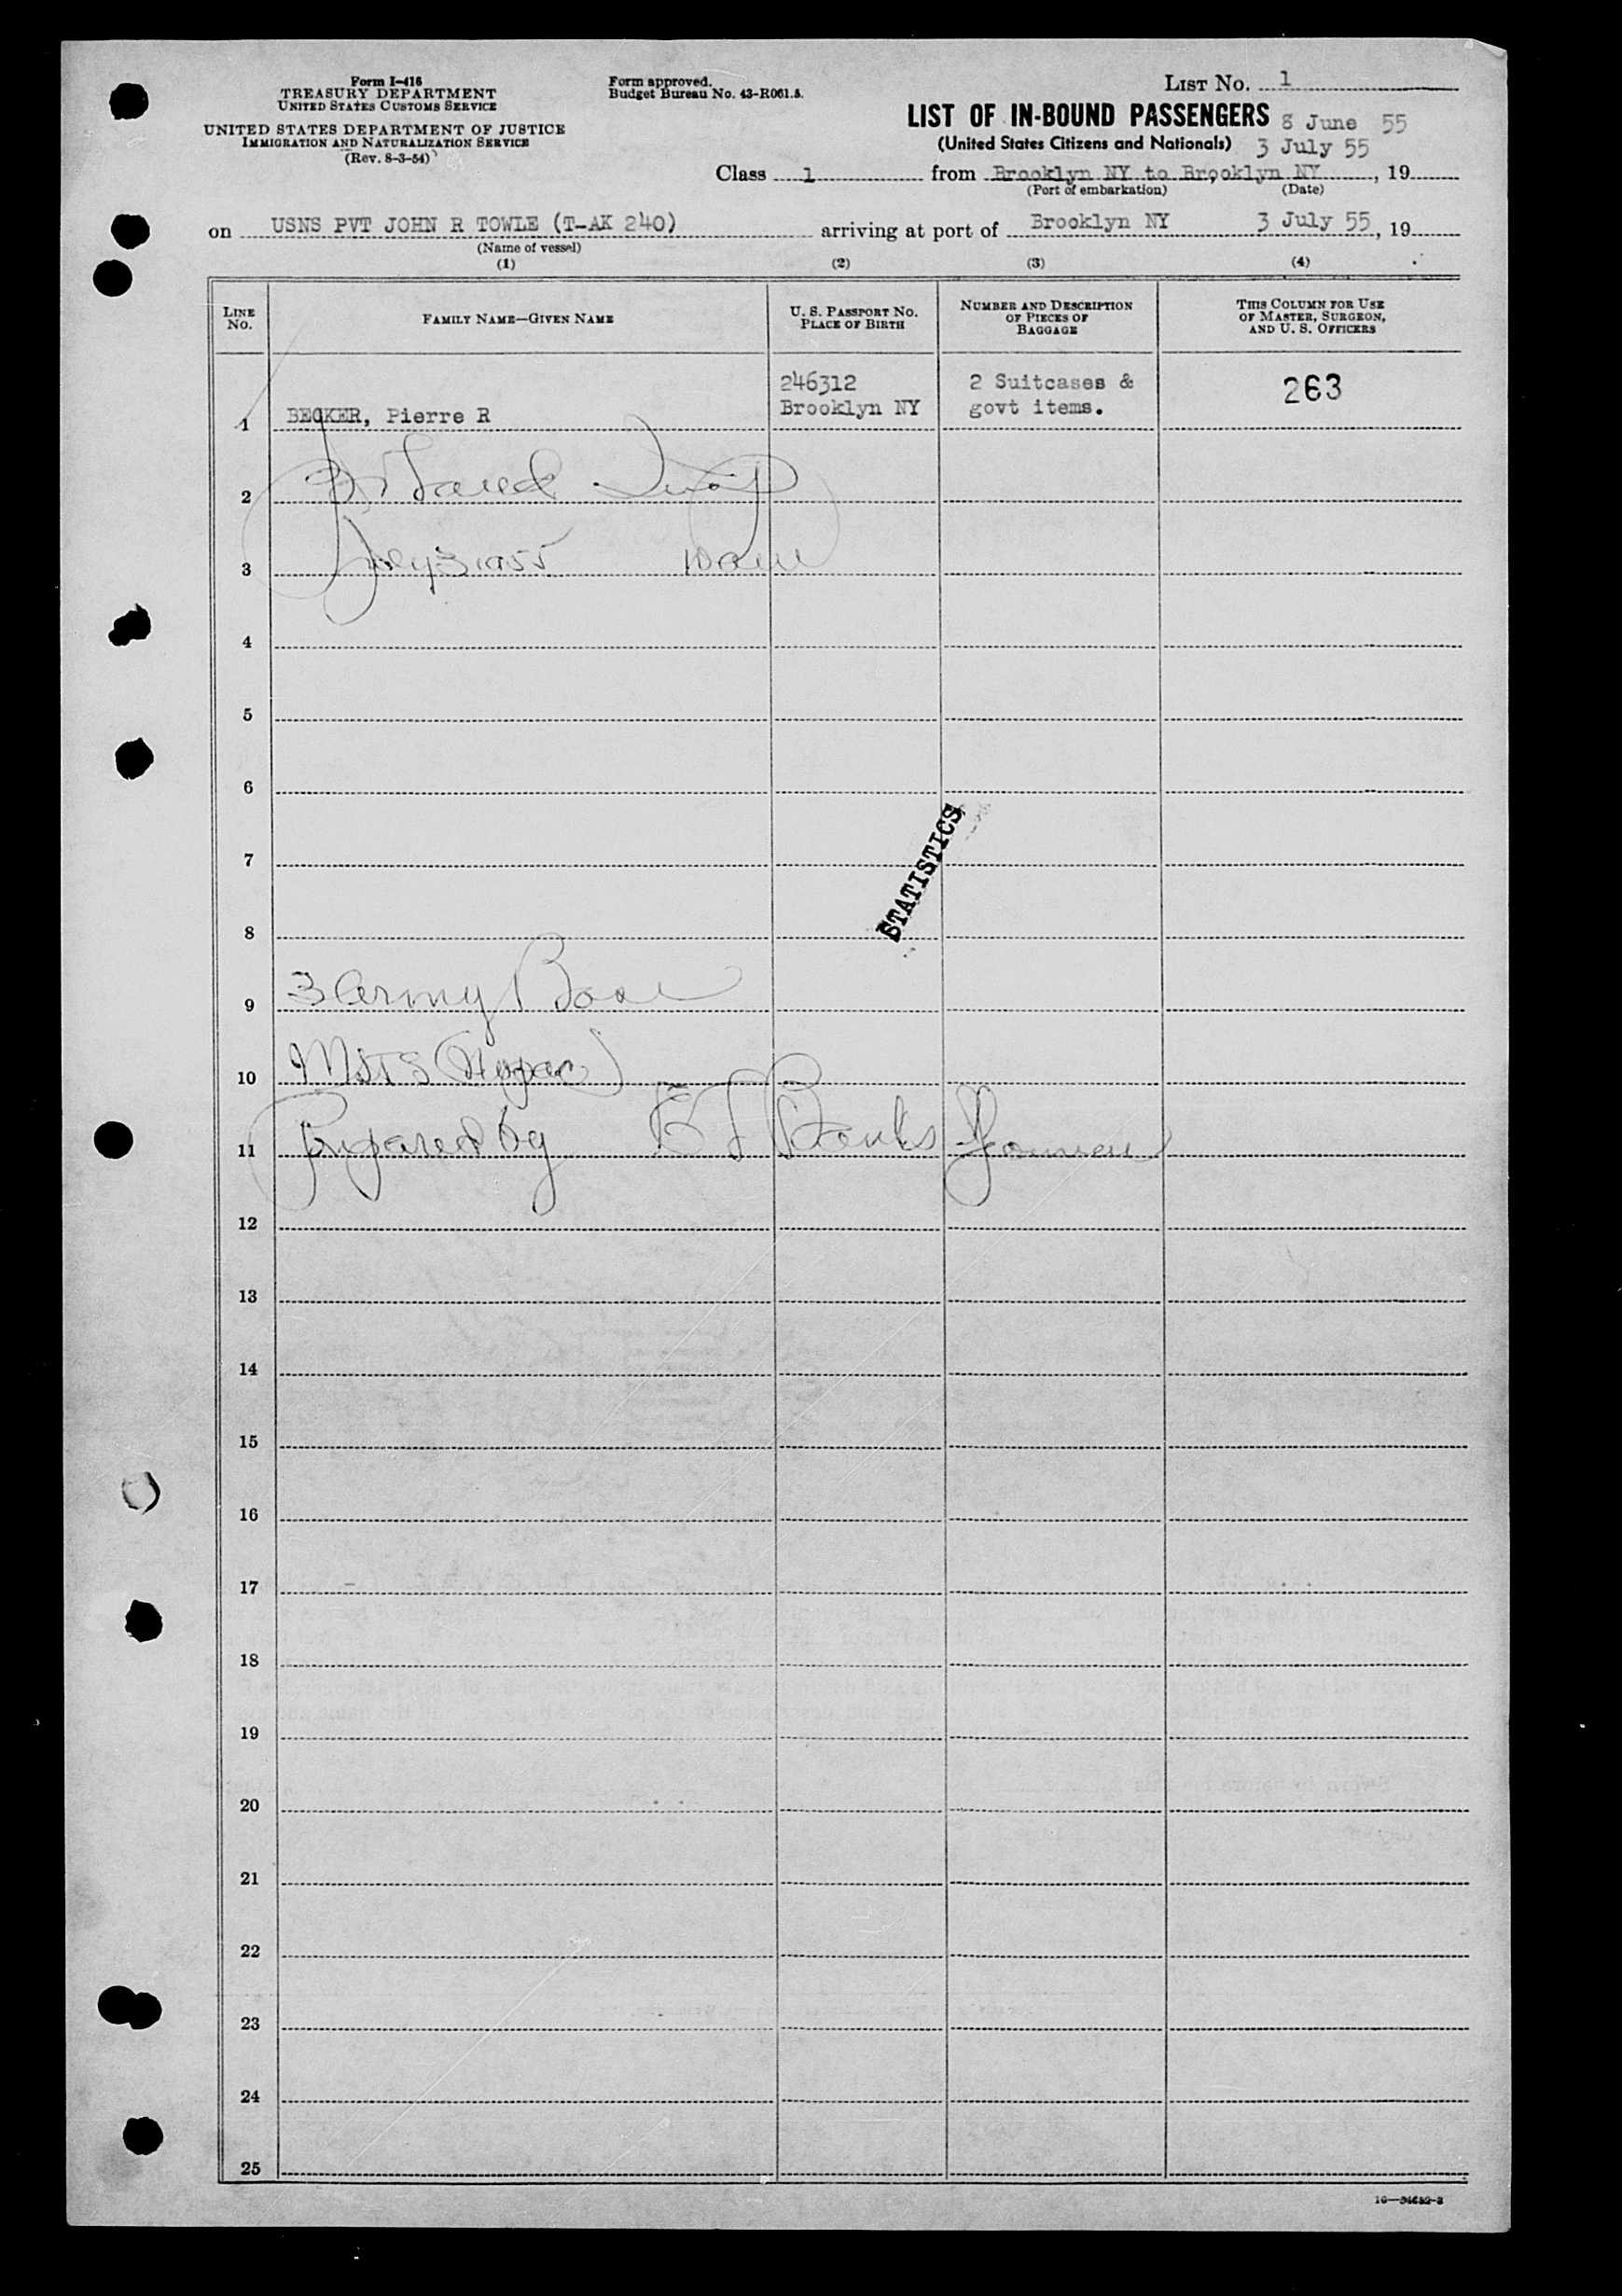 Form I-416
TREASURY DEPARTMENT
UNITED STATES CUSTOMS SERVICE
UNITED STATES DEPARTMENT OF JUSTICE
IMMIGRATION AND NATURALIZATION SERVICE
(Rev. 8-3-54)
Form approved.
Budget Bureau No. 43-R061.5.
LIST NO. 1
LIST OF IN-BOUND PASSENGERS
(United States Citizens and Nationals)
8 June 55
3 July 55
Class 1 from Brooklyn NY to Brooklyn NY, 19
(Port of embarkation) (Date)
on USNS PVT JOHN R TOWLE (T-AK 240) arriving at port of Brooklyn NY 3 July 55, 19
(Name of vessel)
(1) (2) (3) (4)
LINE NO.
FAMILY NAME—GIVEN NAME
U. S. PASSPORT NO.
PLACE OF BIRTH
NUMBER AND DESCRIPTION
OF PIECES OF
BAGGAGE
THIS COLUMN FOR USE
OF MASTER, SURGEON,
AND U. S. OFFICERS
246312 2 Suitcases & 263
1 BECKER, Pierre R Brooklyn NY govt items.
2
3 July 3 1955 10 am
4
5
6
7
STATISTICS
8
9 3 Army Base
10 MSTS
11 Prepared by E J Banks Yeoman
12
13
14
15
16
17
18
19
20
21
22
23
24
25